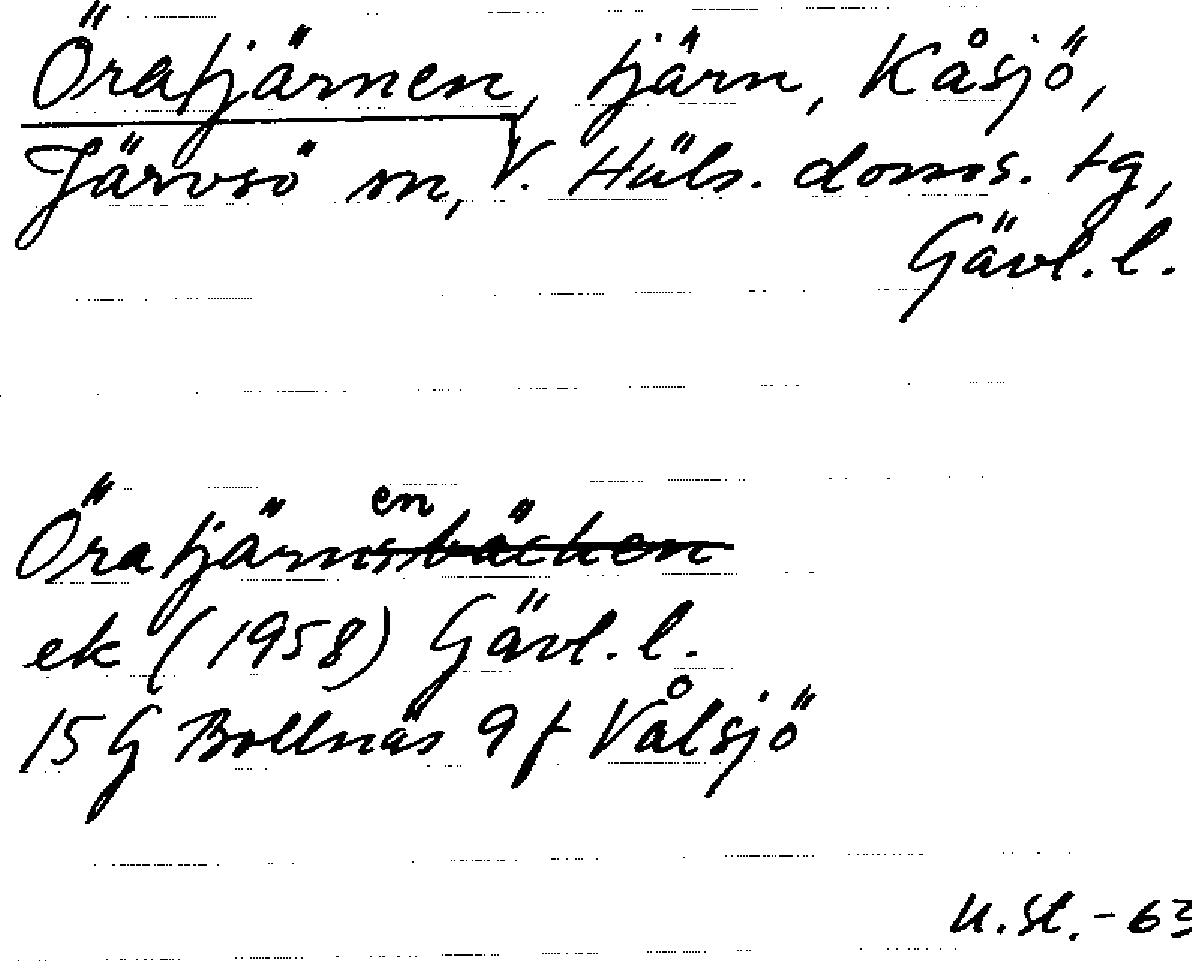 Öratjärnen, tjärn, Kåsjö,
Järvsö sn, V. Häls. doms. tg,
Gävl. l.
Öratjärnen
ek (1958) Gävl. l.
15 G Bollnäs 9 f Vålsjö
U. St. - 63